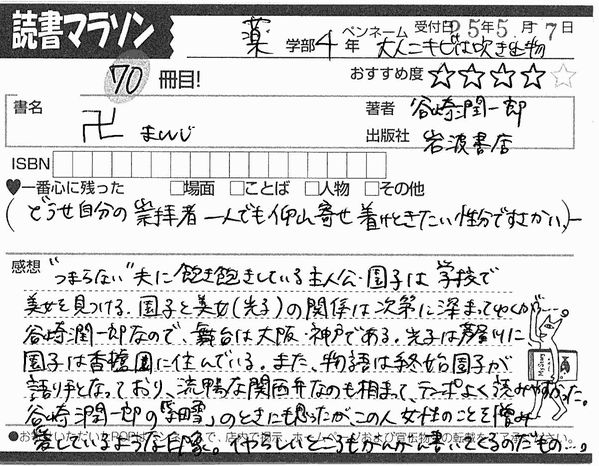 読書マラソン
薬 学部 4 年 ペンネーム 大人ニキビは吹き出物
受付日 25年5月7日
70 冊目!
おすすめ度 ★★★★☆
書名 卍 まんじ
著者 谷崎潤一郎
出版社 岩波書店
ISBN
♥一番心に残った □場面 □ことば □人物 □その他
(どうせ自分の崇拝者一人でも仰山寄せ着けときたい性分ですさかい、)
感想 "つまらない"夫に飽き飽きしている主人公・園子は学校で
美女を見つける。園子と美女(光子)の関係は次第に深まってゆくが…。
谷崎潤一郎なので、舞台は大阪・神戸である。光子は芦屋川に
園子は香櫨園に住んでいる。また、物語は終始園子が
語り手となっており、流暢な関西弁なのも相まって、テンポよく読みやすかった。
谷崎潤一郎の『細雪』のときにも思ったが、この人女性のことを
愛しているような印象。いやらしいところもがんがん書いてくるのだもの…。